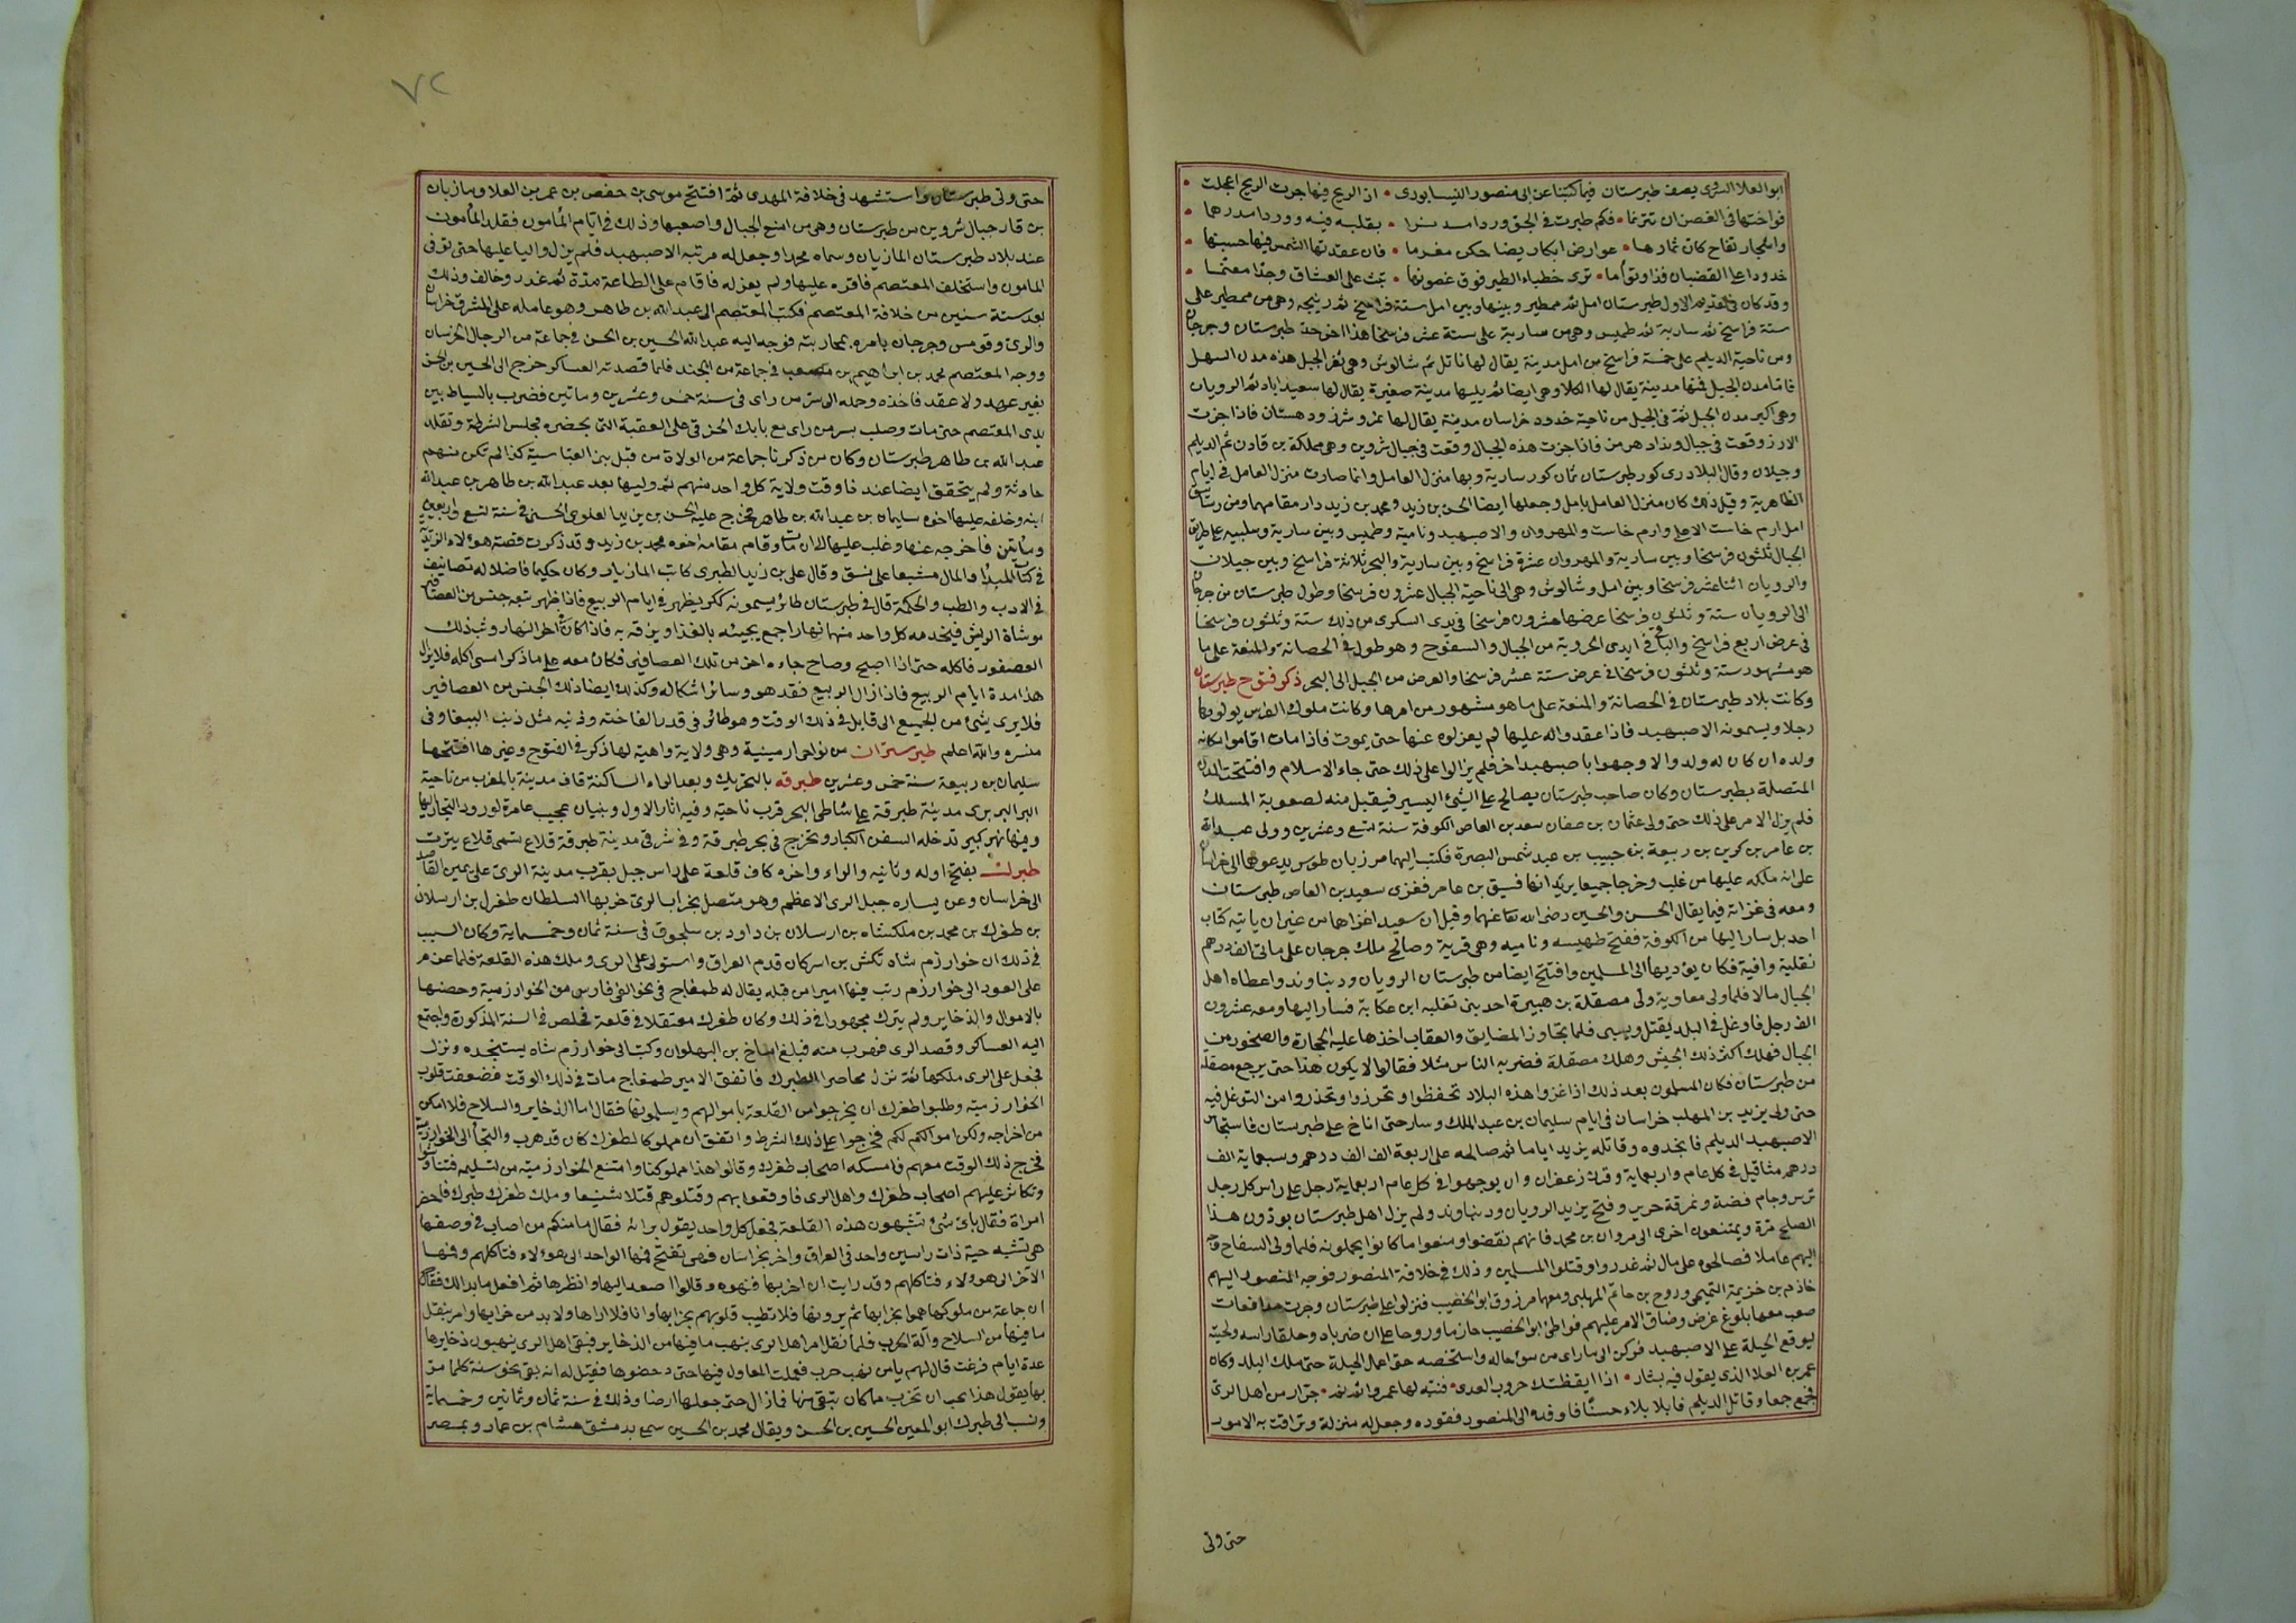 ابو العلا السروى يصف طبرستان فيما كتبنا عن ابى منصور النيسابورى • اذ الريح فيها جرت الريح اعجلت •
فواختها فى الغصن ان تترنما • فكم طيرت فى الجو وردا مدنرا • بقلبه فيه ووردا مدرهما •
واشجار تفاح كان ثمارها • عوارض ابكار يضاحكن مغرما • فان عقدتها الشمس فيها حسبتها •
خدودا على القضبان فذا وتوأما • ترى خطباء الطير فوق غصونها • تبث على العشاق وجدا معتما •
وقد كان فى القديم الاول طبرستان امل ثم ممطير وبينها وبين امل ستة فراسخ ثم ريجه وهى من ممطير على
ستة فراسخ ثم سارية ثم طميس وهى من سارية على ستة عشر فرسخا هذا اخر حد طبرستان وجرجان
ومن ناحية الديلم على خمسة فراسخ من امل مدينة يقال لها ناتل ثم شالوش وهى ثغر الجبل هذه مدن السهل
فاما مدن الجبل فمنها مدينة يقال لها الكلار وهى ايضا ثم يليها مدينة صغيرة يقال لها سعيد اباد ثم الرويان
وهى اكبر مدن الجبل ثم فى الجبل من ناحية خدود خراسان مدينة يقال لها تمز وشرز ودهستان فاذا جزت
الارز وقعت فى جبال ونداد هرمز فاذا جزت هذه الجبال وقعت فى جبال شروين وهى مملكة بن قارن ثم الديلم
وجيلان وقال البلادرى كور طبرستان ثمان كور سارية وبها منزل العامل وانما صارت منزل العامل فى ايام
الظاهرية وقبل ذلك كان منزل العامل بامل وجعلها ايضا الحسن بن زيد ومحمد بن زيد دار مقامهما ومن رستاق
امل ارم خاست الاعلى وارم خاست والمهروان والاصبهبد ونامية وطميس وبين سارية وسلينه على طريق
الجبال ثلثون فرسخا وبين سارية والمهروان عشرة فراسخ وبين سارية والبحر ثلاثة فراسخ وبين جيلان
والرويان اثنا عشر فرسخا وبين امل وشالوش وهى الى ناحية الجبال عشرون فرسخا وطول طبرستان من جرجان
الى الرويان ستة وثلثون فرسخا عرضها عشرون فرسخا فى يدى السكرى من ذلك ستة وثلثون فرسخا
فى عرض اربع فراسخ والباقى فى ايدى الحروبة من الجبال والسفوح وهو طول فى الحصانة والمنعة على ما
هو مشهور ستة وثلثون فرسخا فى عرض ستة عشر فرسخا والعرض من الجبل الى البحر ذكر فتوح طبرستان
وكانت بلاد طبرستان فى الحصانة والمنعة على ما هو مشهور من امرها وكانت ملوك الفرس يولونها
رجلا ويسمونه الاصبهبد فاذا عقدوا له عليها لم يعزلوه عنها حتى يموت فاذا مات اقاموا مكانه
ولده ان كان له ولد والا وجهوا باصبهبد اخر فلم يزالوا على ذلك حتى جاء الاسلام وافتتحت المدن
المتصلة بطبرستان وكان صاحب طبرستان يصالح على الشئ اليسير فيقبل منه لصعوبة المسلك
فلم يزل الامر على ذلك حتى ولى عثمان بن عفان سعد بن العاص الكوفة سنة تسع وعشرين وولى عبد الله
بن عامر بن كريز بن ربيعة بن حبيب بن عبد شمس البصرة فكتب اليهما مرزبان طوس يدعوهما الى خراسان
على ان ملكه عليها من غلب وخرجا جميعا يريدانها فسبق بن عامر فغزى سعيد بن العاص طبرستان
ومعه فى غزاته فيما يقال الحسن والحسين رضى الله تعا عنهما وقيل ان سعيد اغزاها من غير ان ياتيه كتاب
احد بل سار اليها من الكوفة ففتح طميسه وناميه وهى قرية وصالح ملك جرجان على مائتى الف درهم
نقلية وافية فكان يؤديها الى المسلمين وافتتح ايضا من طبرستان الرويان ودنباوند واعطاه اهل
الجبال مالا فلما ولى معاوية ولى مصقلة بن هبيرة احد بنى تغلبه ابن عكابة فسار اليها ومعه عشرون
الف رجل فاوغل فى البلد يقتل ويسبى فلما تجاوز المضايق والعقاب اخذها عليه الحجارة والصخور من
الجبال فهلك اكثر ذلك الجيش وهلك مصقلة فضرب به الناس مثلا فقالوا لا يكون هذا حتى يرجع مصقلة
من طبرستان فكان المسلمون بعد ذلك اذا غزوا هذه البلاد تحفظوا وتحرزوا وتحذروا من التوغل فيه
حتى ولى يزيد بن المهلب خراسان فى ايام سليمان بن عبد الملك وسار حتى اناخ على طبرستان فاستجاش
الاصبهبد الديلم فانجدوه وقاتله يزيد اياما ثم صالحه على اربعة الف الف درهم وسبعماية الف
درهم مثاقيل فى كل عام واربعماية وقر زعفران وان يوجهوا فى كل عام اربعماية رجل على راس كل رجل
ترس وجام فضة ونمرقة حرير وفتح يزيد الرويان ودنباوند ولم يزل اهل طبرستان يودون هذا
الصلح مرة ويمتنعون اخرى الى مروان بن محمد فانهم نقضوا ومنعوا ما كانوا يحملونه فلما ولى السفاح وجه
اليهم عاملا فصالحوه على مال ثم غدروا وقتلوا المسلمين وذلك فى خلافة المنصور فوجه المنصور اليهم
خازم بن خزيمة التميمى وروح بن حاتم المهلبى ومعهما مرزوق ابو الخصيب فنزلوا على طبرستان وجرت مدافعات
صعب معها بلوغ غرض وضاق الامر عليهم فواطئ ابو الخصيب خازما وروحا على ان ضرباه وحلقا راسه ولحيته
ليوقع الحيلة على الاصبهبد فركن الى ما راى من سوء حاله واستخصه حتى اعمل الحيلة حتى ملك البلد وكان
عمر بن العلا الذى يقول فيه بشار • اذا ايقظتك حروب العدى • فنبه لها عمرو اثم نم • جزار من اهل الرى
فجمع جمعا وقاتل الديلم فابلا بلاء حسنا فاوفده الى المنصور فقوده وجعل له منزلة وتراقت به الامور
حتى ولى
٧٢
حتى ولى طبرستان واستشهد فى خلافة المهدى ثم افتتح موسى بن حفص بن عمر بن العلا ومازيار
بن قارن جبال شروين من طبرستان وهى من امنع الجبال واصعبها وذلك فى ايام المأمون فقلد المأمون
عند بلاد طبرستان المازيان وسماه محمدا وجعل له مرتبة الاصبهبد فلم يزل واليا عليها حتى توفى
المامون واستخلف المعتصم فاقره عليها ولم يعزله فاقام على الطاعة مدة ثم غدر وخالف وذلك
بعد ستة سنين من خلافة المعتصم فكتب المعتصم الى عبد الله بن طاهر وهو عامله على المشرق خراسان
والرى وقومس وجرجان يامره بمحاربته فوجه اليه عبد الله الحسين بن الحسن فى جماعة من الرجال الخرسان
ووجه المعتصم محمد بن ابراهيم بن مصعب فى جماعة من الجند فلما قصدته العساكر خرج الى الحسين بن الحسن
بغير عهد ولا عقد فاخذه وحمله الى سر من راى فى سنة خمس وعشرين ومأتين فضرب بالسياط بين
يدى المعتصم حتى مات وصلب بسر من راى مع بابك الحزقى على العقبة التى بحضره مجلس الشرطة وتقلد
عبد الله بن طاهر طبرستان وكان من ذكرنا جماعة من الولاة من قبل بنى العباسية كذا لم تكن منهم
حادثة ولم يتحقق ايضا عند ناوقت ولاية كل واحد منهم ثم وليها بعد عبد الله بن طاهر بن عبد الله
ابنه وخلفه عليها اخوه سليمان بن عبد الله بن طاهر فخرج عليه الحسن بن زيد العلوى الحسنى فى سنة تسع واربعين
ومأتين فاخرجه عنها وغلب عليها الى ان مات وقام مقامه اخوه محمد بن زيد وقد ذكرت قصة هؤلاء الزيدية
فى كتاب المبدا والمال مشبعا على نسق وقال على بن زيد الطبرى كاتب المازيار وكان حكيما فاضلا له تصانيف
فى الادب والطب والحكمة قال فى طبرستان طائر يسمونه ككر يظهر فى ايام الربيع فاذا ظهر تبعه جنس من العصافير
موشاة الريش فيخدمه كل واحد منها نهارا اجمع يجيئه بالغذا ويزقه به فاذا كان اخر النهار وثب ذلك
العصفور فاكله حتى اذا اصبح وصاح جاءه اخر من تلك العصافير فكان معه على ما ذكرا امسى اكله فلا يزال
هذا مدة ايام الربيع فاذا زال الربيع فقد هو وسائر اشكاله وكذلك ايضا ذلك الجنس من العصافير
فلا يرى شئ من الجميع الى قابل فى ذلك الوقت وهو طائر فى قدر الفاخته وذنبه مثل ذنب الببغا وفى
منسره والله اعلم طبرستران من نواحى ارمينية وهى ولاية واهية لها ذكر فى الفتوح وغيرها افتتحها
سليمان بن ربيعة سنة خمس وعشرين طبرقه بالتحريك وبعد الراء الساكنة قاف مدينة بالمغرب من ناحية
البر البربرى مدينة طبرقة على شاطى البحر قرب ناحيته وفيه اثار الاول وبنيان عجيب عامرة لورود التجار اليها
وبها نهر كبير تدخله السفن الكبار وتخرج فى بحر طبرقة وفى شرقى مدينة طبرقة قلاع تسمى قلاع بيزرت
طبرك بفتح اوله وثانيه والراء واخره كاف قلعة على راس جبل بقرب مدينة الرى على يمين القاصد
الى خراسان وعن يساره جبل الرى الاعظم وهو متصل بخراب الرى خربها السلطان طغرل بن ارسلان
بن طغرك بن محمد بن ملكشاه بن ارسلان بن داود بن سلجوق فى سنة ثمان وخمسماية وكان السبب
فى ذلك ان خوارزم شاه تكش بن اسركان قدم العراق واستولى على الرى وملك هذه القلعة فلما عزم
على العود الى خوارزم رتب فيها اميرا من قبله يقال له طمغاج فى نحو الفى فارس من الخوارزمية وحصنها
بالاموال والذخاير ولم يترك مجهودا فى ذلك وكان طغرك معتقلا فى قلعة فخلص فى السنة المذكورة واجتمع
اليه العساكر وقصد الرى فهرب منه قتلغ اساخ بن البهلوان وكتب الى خوارزم شاه يستنجده ونزل
فجعل على الرى ملكها ثم نزل محاصرا الطبرك فاتفق الامير طمغاج مات فى ذلك الوقت فضعفت قلوب
الخوارزمية وطلبوا طغرك ان يخرجوا من القلعة باموالهم ويسلمونها فقال اما الذخاير والسلاح فلا امكن
من اخراجه ولكن اموالكم لكم فخرجوا على ذلك الشرط واتفق ان مملوكا لطغرك كان قد هرب والتجأ الى الخوارزمية
فخرج ذلك الوقت معهم فامسكه اصحاب طغرك وقالوا هذا مملوكنا وامتنع الخوارزمية من تسليمه فتناوشوا
وتكاثر عليهم اصحاب طغرك واهل الرى فاوقعوا بهم وقتلوهم قتلا شنيعا وملك طغرك طبرك فاحضر
امراة فقال باى شئ تشبهون هذه القلعة فجعل كل واحد يقول برائه فقال ما منكم من اصاب فى وصفها
هى تشبه حية ذات راسين واحد فى العراق واخر بخراسان فهى تفتح فمها الواحد الى هؤلاء فتاكلهم وفمها
الآخر الى هؤولاء فتاكلهم وقد رايت ان اخربها فنهوه وقالوا اصعد اليها وانظرها ثم افعل ما بدا لك فقال
ان جماعة من ملوكها هموا بخرابها ثم يرونها فلا تطيب قلوبهم بخرابها وانا فلا اراها ولا بد من خرابها وامر بنقل
ما فيها من السلاح وآلة الحرب فلما نقل امر اهل الرى بنهب ما فيها من الذخاير فبقى اهل الرى ينهبون ذخايرها
عدة ايام فرغت قال لهم ياس نهب خرب فعملت المعاول فيها حتى دحضوها فقيل له انه بقى نحو سنة كلما مر
بها يقول هذا يجب ان تخرب ما كان يبقى منها فما زال حتى جعلها ارضا وذلك فى سنة ثمان وثمانين وخمسماية
ونسب الى طبرك ابو المعين الحسين بن الحسن ويقال محمد بن الحسين سمع بدمشق هشام بن عمار وبمصر